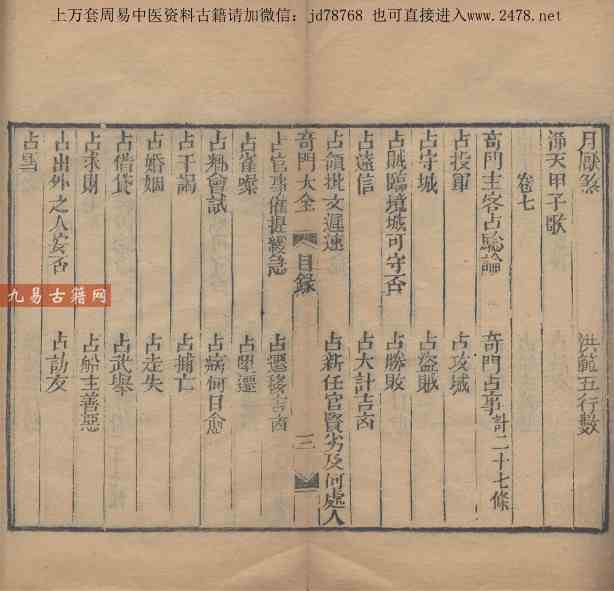 上万套周易中医资料古籍请加微信：jd78768 也可直接进入www.2478.net
月厭煞　洪範五行數
渾天甲子歌
卷七
奇門主客占驗論　奇門占事計二十七條
占投軍　占攻城
占守城　占盜賊
占賊臨境城可守否　占勝敗
占遠信　占大計吉凶
占領批文遲速　占新任官賢劣及何處人
奇門大全　目錄　三
占官事催提緩急　占遷移吉凶
占雀噪　占陞遷
占鄉會試　占病何日愈
占干謁　占捕亡
占婚姻　占走失
占借貸　占武舉
占求財　占船主善惡
占出外之人安否　占訪友
占雪
九易古籍网